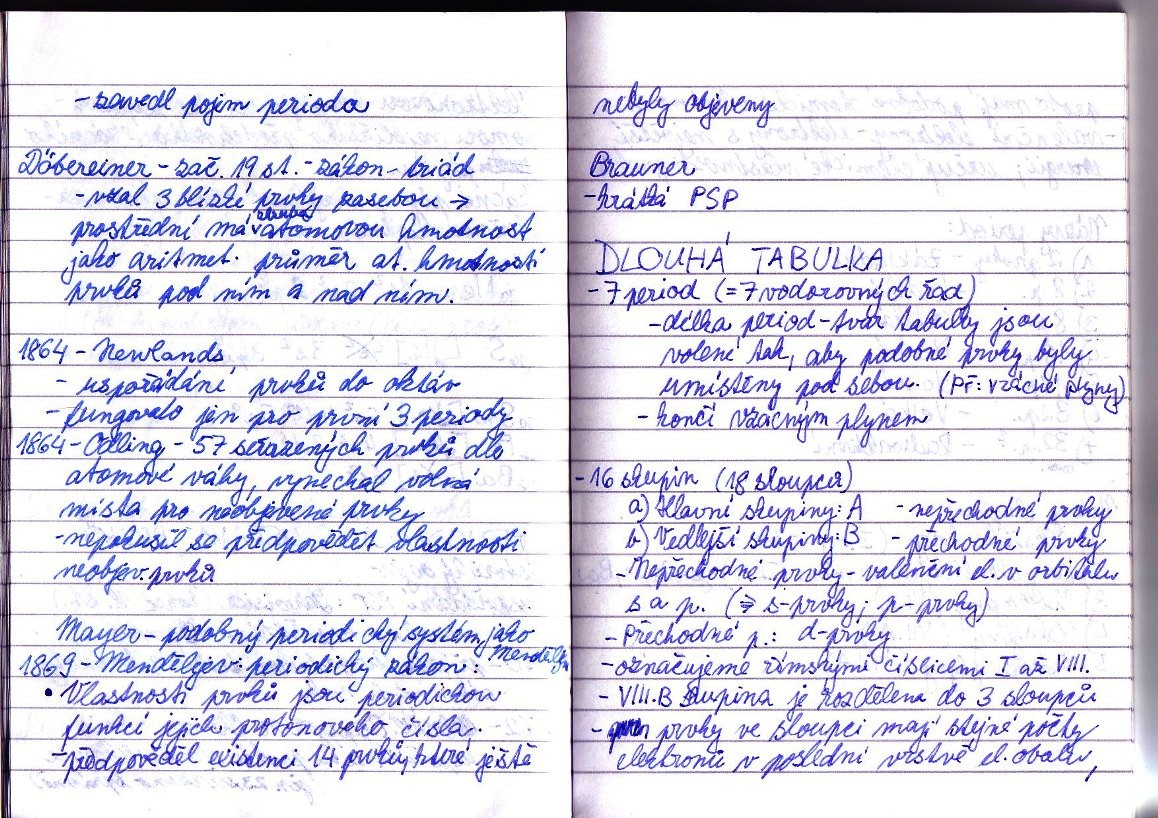 - zavedl pojem perioda
Döbereiner - zač. 19 st. - zákon - triád
- vzal 3 blízké prvky zasebou →
prostřední má atomovou hmotnost
jako aritmet. průměr at. hmotností
prvků pod ním a nad ním.
1864 - Newlands
- uspořádání prvků do oktáv
- fungovalo jen pro první 3 periody
1864 - Odling - 57 seřazených prvků dle
atomové váhy, vynechal volná
místa pro neobjevené prvky
- nepokusil se předpovědět vlastnosti
neobjev. prvků
Mayer - podobný periodický systém jako
Mendělejev
1869 - Mendělejev: periodický zákon:
• Vlastnosti prvků jsou periodickou
funkcí jejich protonového čísla.
- předpověděl existenci 14 prvků, které ještě
nebyly objeveny
Brauner
- krátká PSP
DLOUHÁ TABULKA
- 7 period (= 7 vodorovných řad)
- délka period - tvar tabulky jsou
volené tak, aby podobné prvky byly
umístěny pod sebou. (Př: vzácné plyny)
- končí vzácným plynem
- 16 skupin (18 sloupců)
a) Hlavní skupiny: A - nepřechodné prvky
b) Vedlejší skupiny: B - přechodné prvky
- Nepřechodné prvky - valenční el. v orbitalu
s a p. (⇒ s-prvky; p-prvky)
- Přechodné p.: d-prvky
- označujeme římskými číslicemi I až VIII.
- VIII.B skupina je rozdělena do 3 sloupců
- prvky ve sloupci mají stejné počty
elektronů v poslední vrstvě el. obalu,